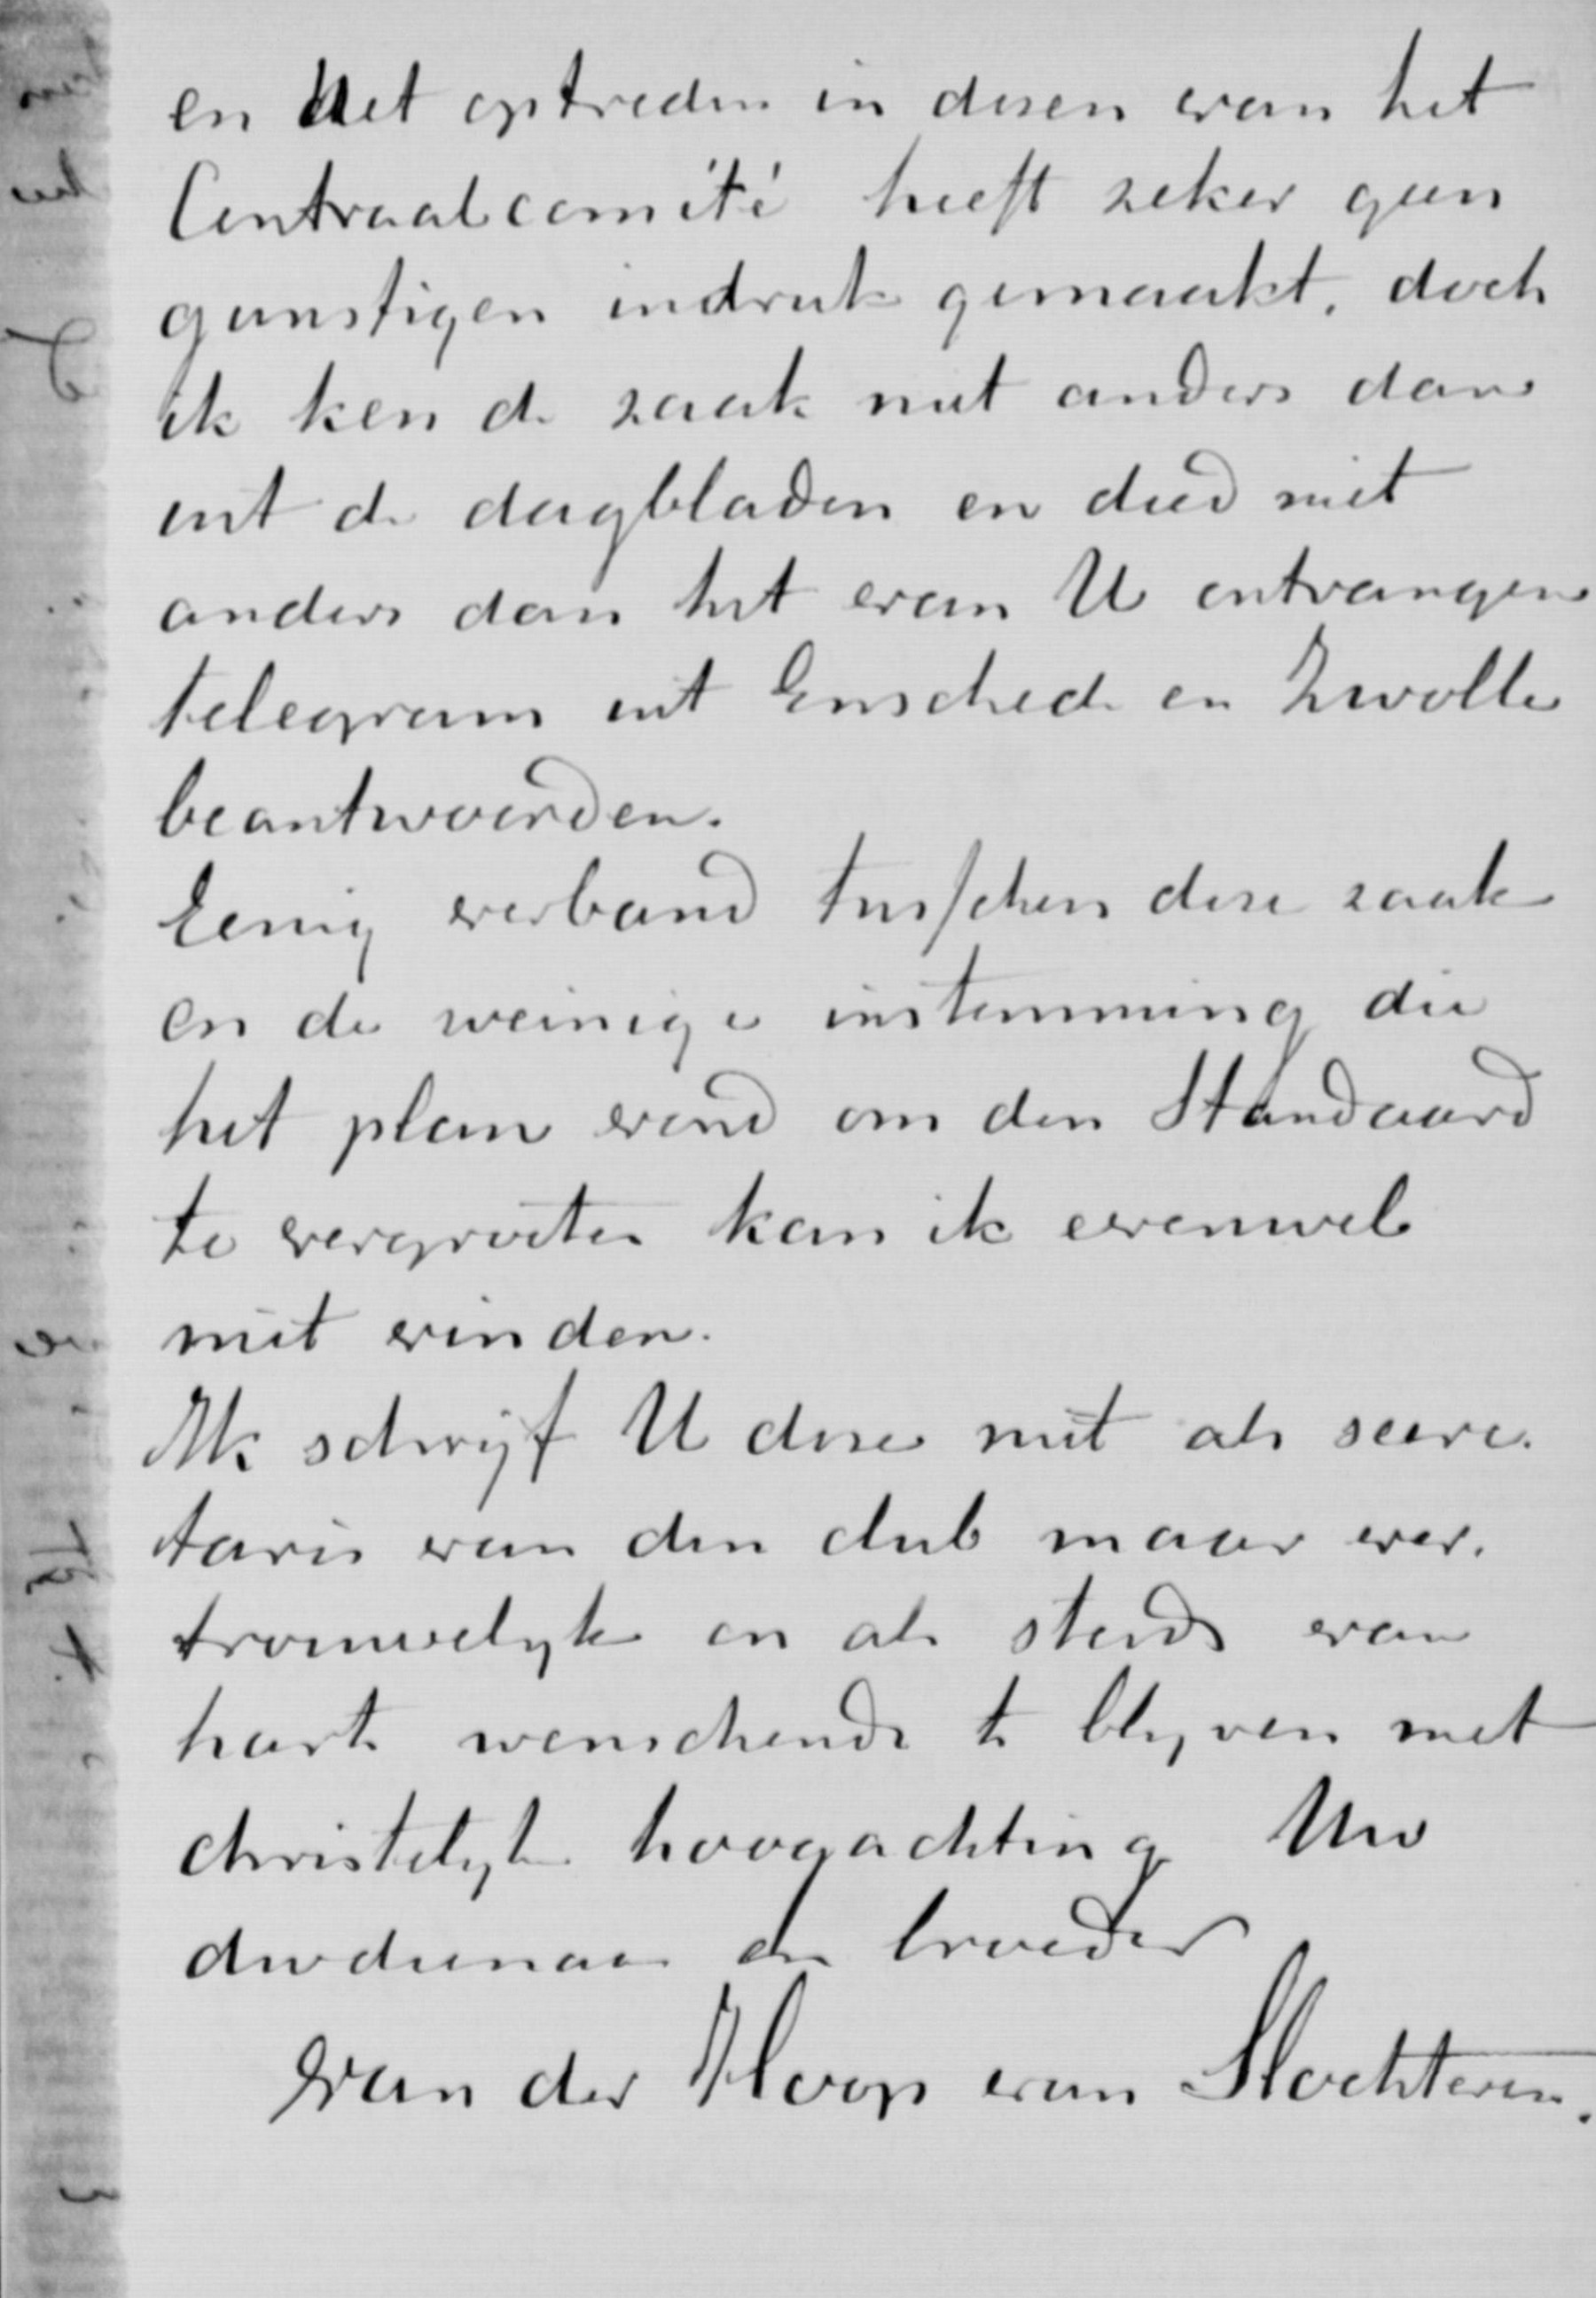 en het optreden in desen van het
Centraalcomité heeft zeker geen
gunstigen indruk gemaakt, doch
ik ken de zaak niet anders dan
uit de dagbladen en deed niet
anders dan het van U ontvangen
telegram uit Enschede en Zwolle
beantwoorden.
Eenig verband tusschen dese zaak
en de weinige instemming die
het plan vond om den Standaard
te vergrooten kan ik evenwel
niet vinden.
Ik schrijf U dese niet als secre-
taris van den club maar ver-
trouwelyk en als steeds van
harte wenschende te blyven met
christelyke hoogachting Uw
dwdienaar en broeder
van der Hoop van Slochteren.